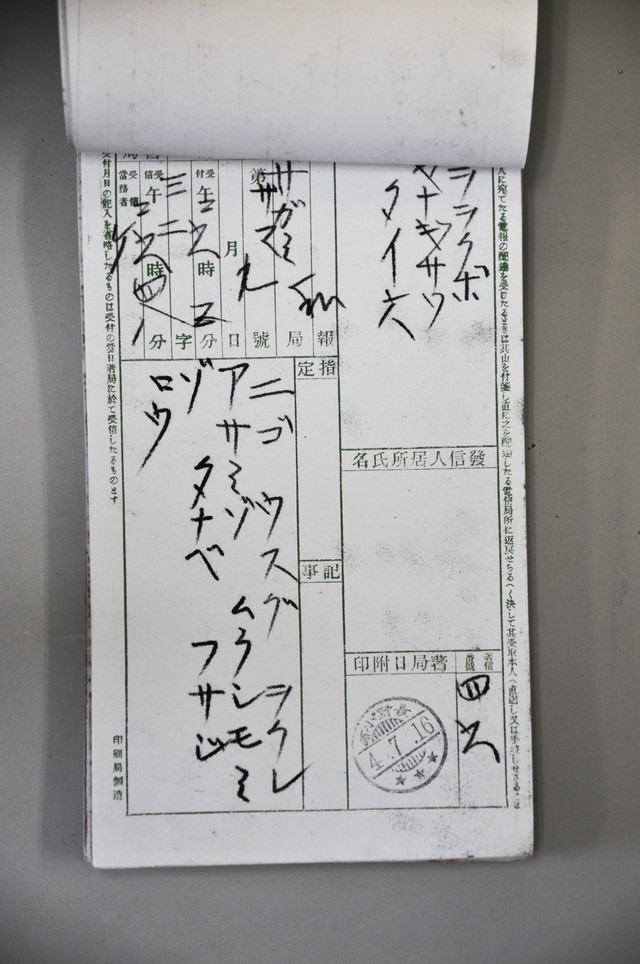 人に宛てたる電報の配達を受けたるときは其由を付箋し直に之を配達したる電信局所に返戻せらるへく決して其受取本人へ直送し又は手渡しせさること
シラクボ
ヤナギサワ
タイ六
發信人居所氏名
著局日附印
著信番號
四六
長野小諸
4.7.16
報
局
號
日
分
字
分
私
サガミ
サマ
第
九
月
受付
午
三
六
時
五
三二
受信
午
三
時
四八
受信當務者
指定
記事
ニゴ ウスグ ヲクレ
アサミゾ ムラシモミ
ゾ タナベ フサジ
ロウ
受付月日の記入を省略したるものは受付の翌日著局に於て受信したるものとす
印刷局製造